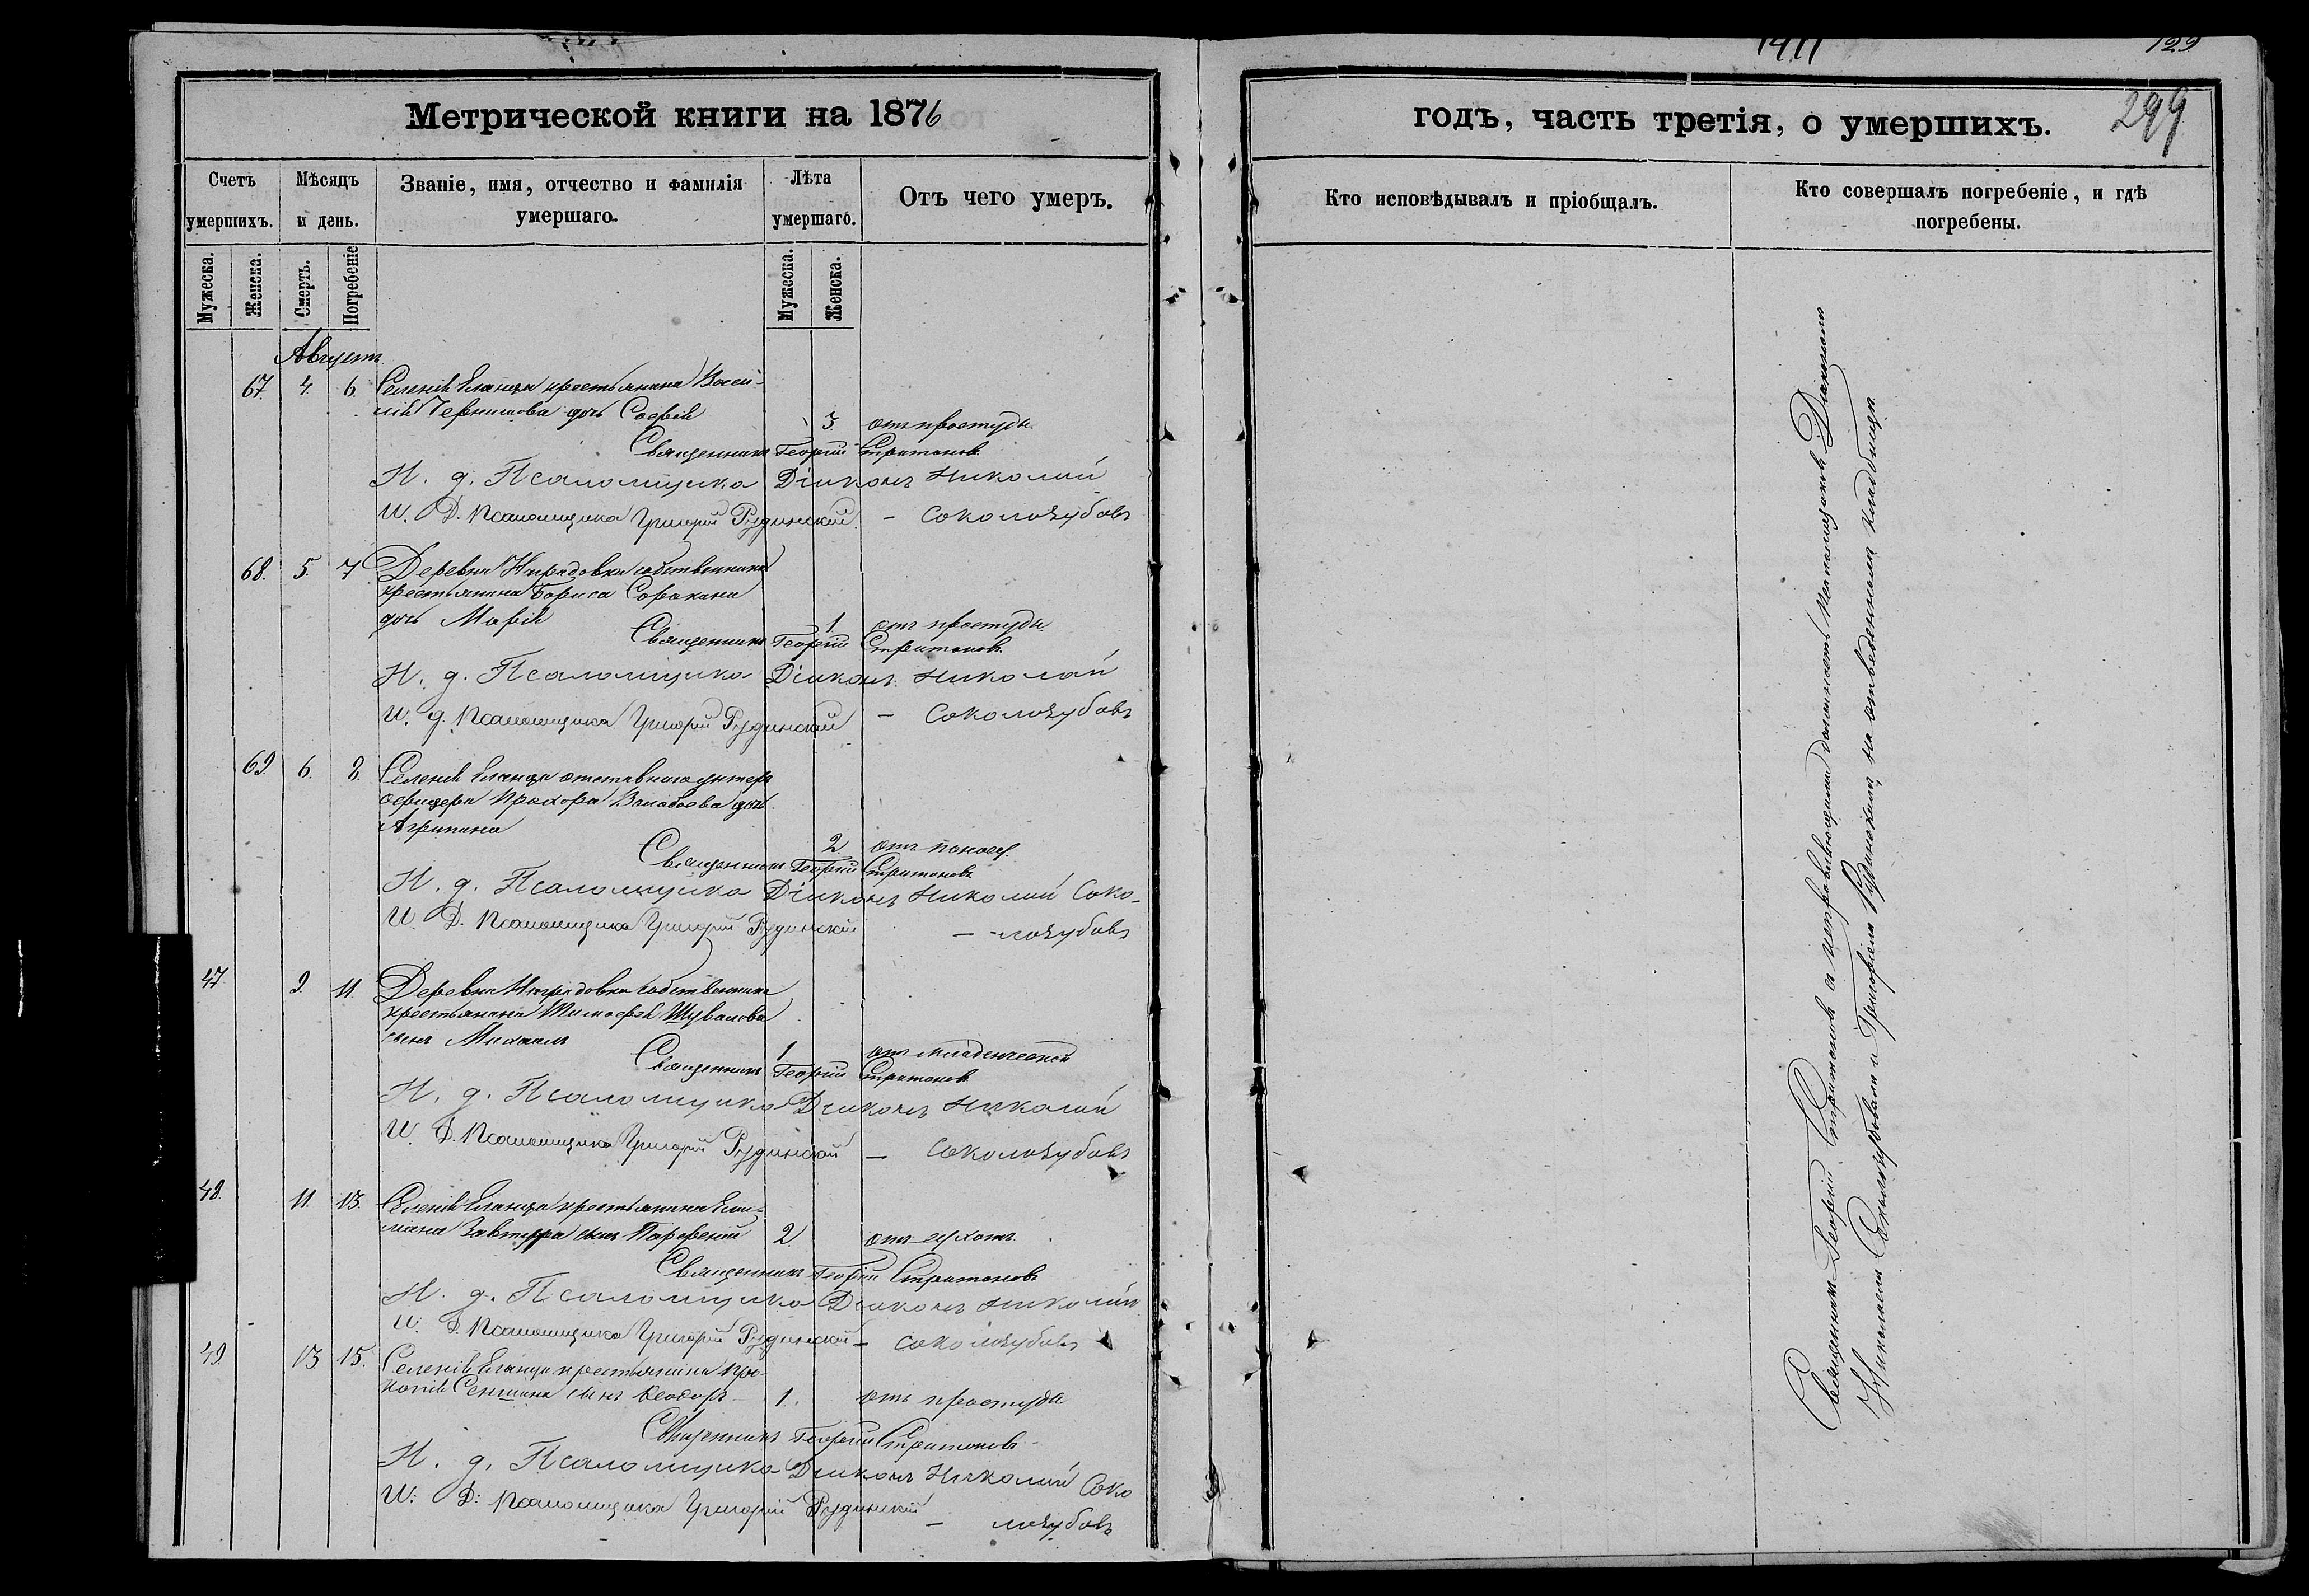 Метрической книги на 1876
Счетъ умершихъ.
Мѣсяцъ и день.
Званіе, имя, отчество и фамилія умершаго.
Лѣта умершаго.
Отъ чего умеръ.
Мужеска.
Женска.
Смерть.
Погребеніе
Мужеска.
Женска.
Августъ
67. 4. 6. Селенія Еланца крестьянина Васи-
лія Чернишова дочь Софія
3. отъ простуды.
Священникъ Георгій Стратоновъ
И. д. Псаломщика Діаконъ Николай
И. Д. Псаломщика Григорій Рудинскій. - Соколозубовъ
68. 5. 7 Деревни собственника
крестьянина Бориса Сорокина
дочь Марія
1. отъ простуды
Священникъ Георгій Стратоновъ
И. д. Псаломщика Діаконъ Николай
И. д. Псаломщика Григорій Рудинскій - Соколозубовъ
69. 6. 8. Селенія Еланца отставного унтеръ
офицера Прохора дочь
Агрипина
2 отъ поноса.
Священникъ Георгій Стратоновъ
И. д. Псаломщика Діаконъ Николай Соко-
И. Д. Псаломщика Григорій Рудинскій
- -лозубовъ
47. 9. 11. Деревни собственника
крестьянина Тимофея Шувалова
сынъ Михаилъ
1. отъ младенческой
Священникъ Георгій Стратоновъ
И. д. Псаломщика Діаконъ Николай
И. Д. Псаломщика Григорій Рудинскій - Соколозубовъ
48. 11. 13. Селенія Еланца крестьянина
сынъ Парфеній 2. отъ сухотъ.
Священникъ Георгій Стратоновъ
И. д. Псаломщика Діаконъ Николай
И. Д. Псаломщика Григорій Рудинскій - Соколозубовъ
49. 13 15. Селенія Еланца крестьянина Про-
копія Сеншина сынъ Ѳеодоръ - 1. отъ простуды
Священникъ Георгій Стратоновъ
И. д. Псаломщика Діаконъ Николай Соко
И. Д. Псаломщика Григорій Рудинскій
- лозубовъ
129
299
годъ, часть третія, о умершихъ.
Кто исповѣдывалъ и пріобщалъ.
Кто совершалъ погребеніе, и гдѣ погребены.
Священникъ Георгій Стратоновъ съ исправляющими должность псаломщиковъ Діакономъ
Николаемъ Соколозубовымъ и Григоріемъ Рудинскимъ, на отведенномъ кладбищѣ.